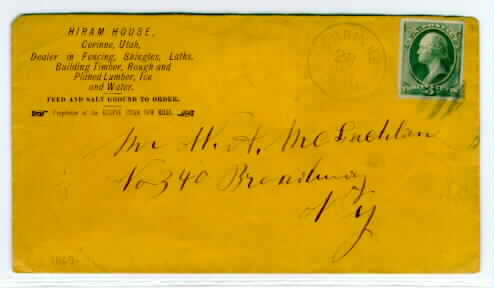 HIRAM HOUSE,
Corinne, Utah,
Dealer in Fencing, Shingles, Laths,
Building Timber, Rough and
Planed Lumber, Ice
and Water.
FEED AND SALT GROUND TO ORDER.
Proprietor of the
CORINNE
29
Mr H. A. McLachlan
No 340 Broadway
N Y
1869-